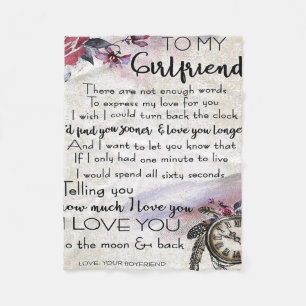 TO MY
Girlfriend
There are not enough words
To express my love for you
I wish I could turn back the clock
I'd find you sooner & love you longe
And I want to let you know that
If I only had one minute to live
I would spend all sixty seconds
Telling you
how much I love you
I LOVE YOU
to the moon & back
LOVE: YOUR BOYFRIEND